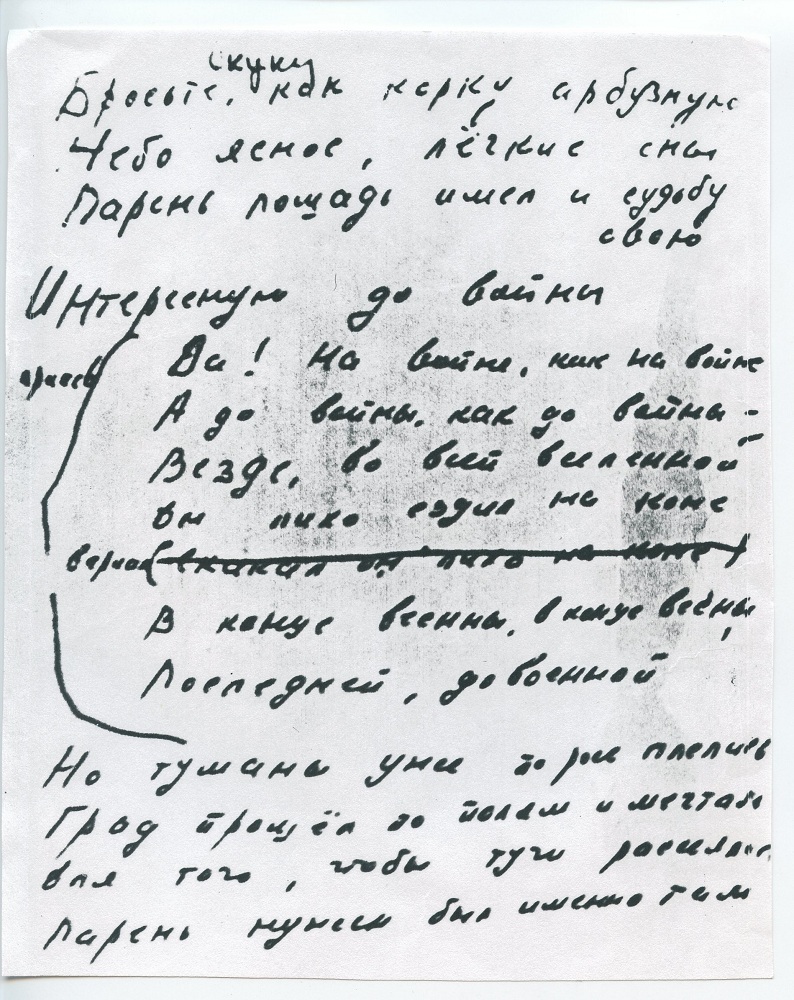 скуку
Бросьте, как корку арбузную
Небо ясное, лёгкие сны
Парень лошадь имел и судьбу
свою
Интересную до войны
Да! На войне, как на войне
припев
А до войны, как до войны -
Везде, во всей вселенной
Он лихо ездил на коне
(скакал он лихо на коне)
В конце весны, в конце весны
Последней, довоенной
Но туманы уже по росе плелись
Град прошёл по полям и мечтам
Для того, чтобы тучи рассеялись
Парень нужен был именно там